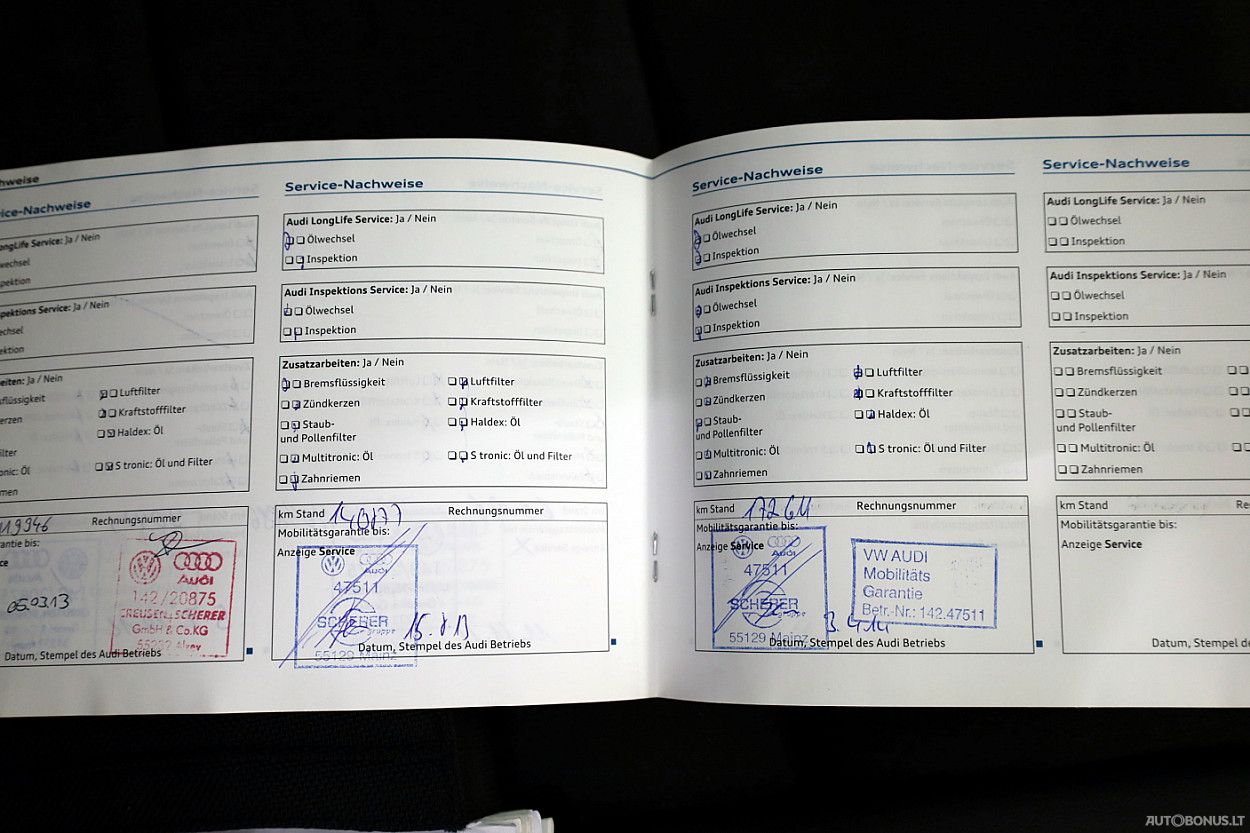 hweise
ice-Nachweise
ongLife Service: Ja / Nein
wechsel
pektion
pektions Service: Ja / Nein
echsel
ektion
eiten: Ja / Nein
flüssigkeit
Luftfilter
erzen
Kraftstofffilter
Haldex: Öl
ilter
onic: Öl
S tronic: Öl und Filter
men
119946 Rechnungsnummer
antie bis:
ce
AUDI
142/20875
KREUSER & SCHERER
GmbH & Co.KG
Alzey
06.03.13
Datum, Stempel des Audi Betriebs
Service-Nachweise
Audi LongLife Service: Ja / Nein
Ölwechsel
Inspektion
Audi Inspektions Service: Ja / Nein
Ölwechsel
Inspektion
Zusatzarbeiten: Ja / Nein
Bremsflüssigkeit
Luftfilter
Zündkerzen
Kraftstofffilter
Staub-
und Pollenfilter
Haldex: Öl
Multitronic: Öl
S tronic: Öl und Filter
Zahnriemen
km Stand Rechnungsnummer
Mobilitätsgarantie bis:
Anzeige Service
AUDI
47511
SCHERER
gruppe
55129 Mainz
15.8.13
Datum, Stempel des Audi Betriebs
Service-Nachweise
Audi LongLife Service: Ja / Nein
Ölwechsel
Inspektion
Audi Inspektions Service: Ja / Nein
Ölwechsel
Inspektion
Zusatzarbeiten: Ja / Nein
Bremsflüssigkeit
Luftfilter
Zündkerzen
Kraftstofffilter
Staub-
und Pollenfilter
Haldex: Öl
Multitronic: Öl
S tronic: Öl und Filter
Zahnriemen
km Stand 172611 Rechnungsnummer
Mobilitätsgarantie bis:
Anzeige Service
AUDI
47511
SCHERER
gruppe
55129 Mainz
VW AUDI
Mobilitäts
Garantie
Betr.-Nr.: 142.47511
3.4.14
Datum, Stempel des Audi Betriebs
Service-Nachweise
Audi LongLife Service: Ja / Nein
Ölwechsel
Inspektion
Audi Inspektions Service: Ja / Nein
Ölwechsel
Inspektion
Zusatzarbeiten: Ja / Nein
Bremsflüssigkeit
Zündkerzen
Staub-
und Pollenfilter
Multitronic: Öl
Zahnriemen
km Stand Rechnungsn
Mobilitätsgarantie bis:
Anzeige Service
Datum, Stempel de
AUTOBONUS.LT